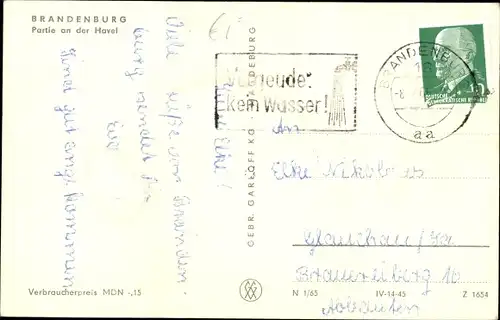 BRANDENBURG
Partie an der Havel
Liebe Elke!
Viele Grüße von Branden-
burg sendet Dir
Sind gut angekommen
GEBR. GARLOFF KG, MAGDEBURG
Vergeudet
kein Wasser!
BRANDENBURG
aa
DEUTSCHE
DEMOKRATISCHE REPUBLIK
An
Elke
Glauchau/Sa
Brauereiberg 10
Verbraucherpreis MDN -,15
N 1/65
IV-14-45
Z 1654